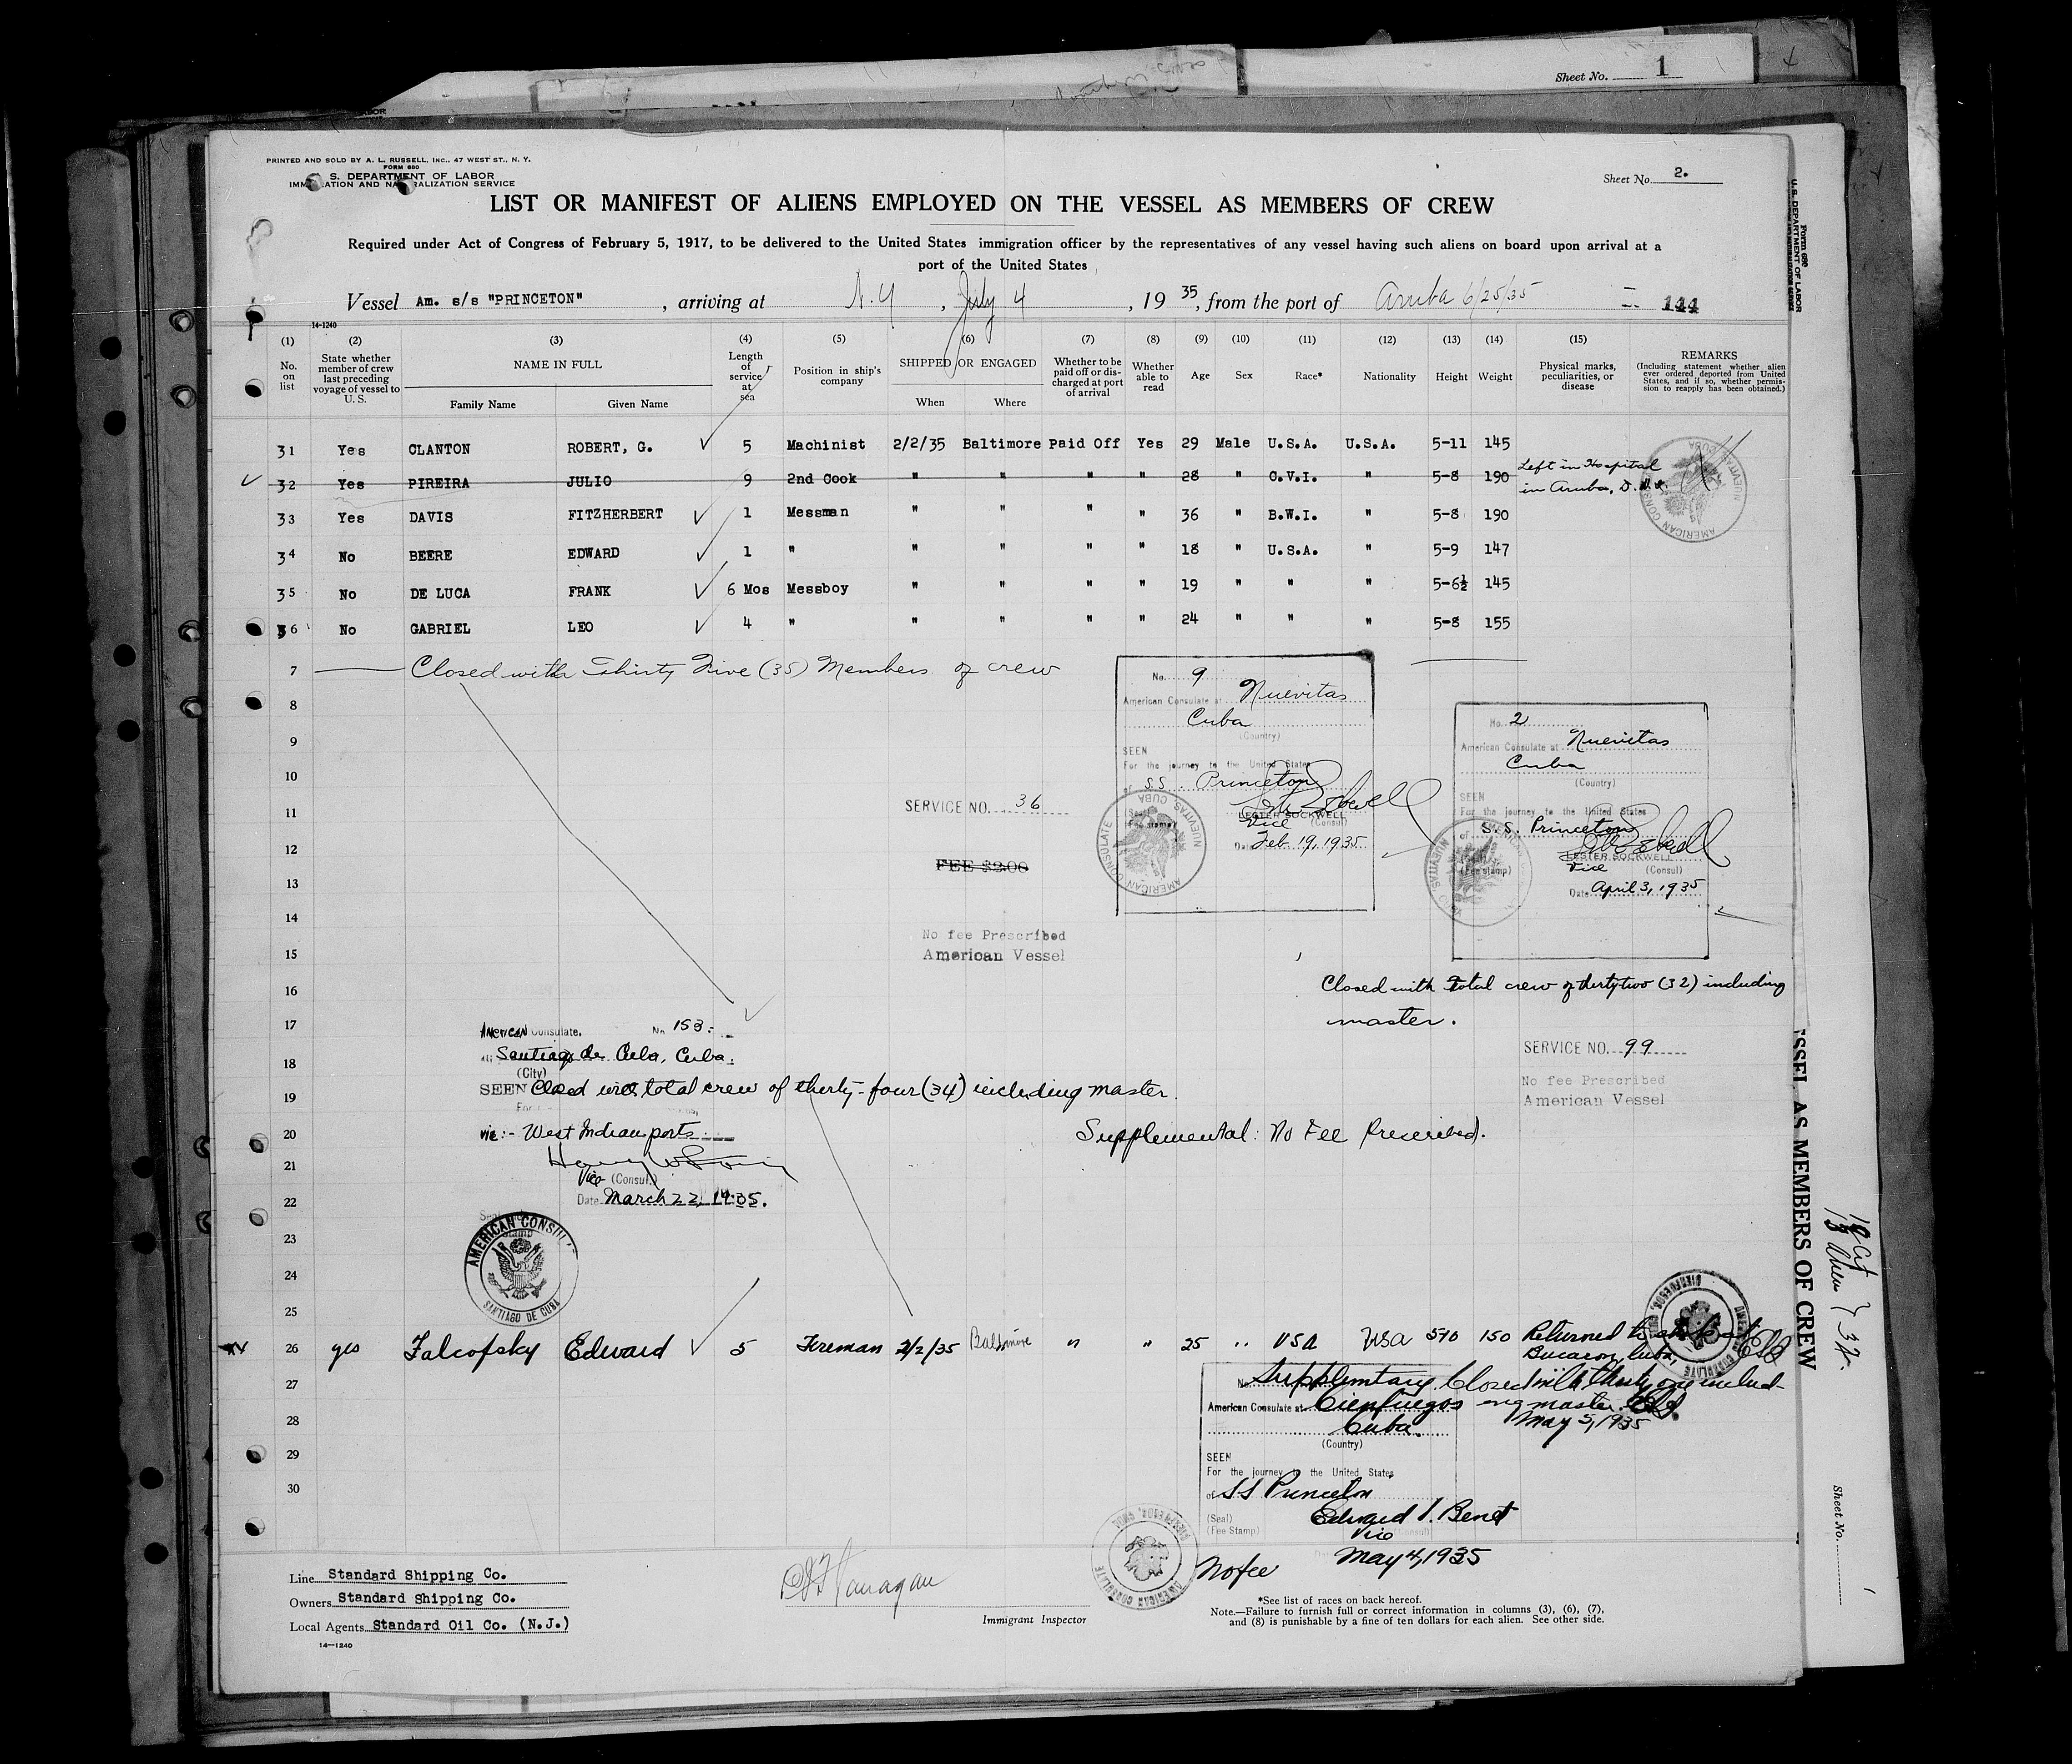 Sheet No. 1
PRINTED AND SOLD BY A. L. RUSSELL, INC., 47 WEST ST., N. Y.
FORM 680
S. DEPARTMENT OF LABOR
IMMIGRATION AND NATURALIZATION SERVICE
Sheet No. 2.
LIST OR MANIFEST OF ALIENS EMPLOYED ON THE VESSEL AS MEMBERS OF CREW
Required under Act of Congress of February 5, 1917, to be delivered to the United States immigration officer by the representatives of any vessel having such aliens on board upon arrival at a
port of the United States
Vessel Am. s/s "PRINCETON", arriving at N.Y, July 4, 1935, from the port of Aruba 6/25/35 144
14-1240
(1) (2) (3) (4) (5) (6) (7) (8) (9) (10) (11) (12) (13) (14) (15)
No. on list
State whether member of crew last preceding voyage of vessel to U. S.
NAME IN FULL
Family Name
Given Name
Length of service at sea
Position in ship's company
SHIPPED OR ENGAGED
When
Where
Whether to be paid off or discharged at port of arrival
Whether able to read
Age
Sex
Race*
Nationality
Height
Weight
Physical marks, peculiarities, or disease
REMARKS
(Including statement whether alien ever ordered deported from United States, and if so, whether permission to reapply has been obtained.)
31 Yes CLANTON ROBERT, G. 5 Machinist 2/2/35 Baltimore Paid Off Yes 29 Male U.S.A. U.S.A. 5-11 145
32 Yes PIREIRA JULIO 9 2nd Cook " " " " 28 " C.V.I. " 5-8 190 Left in Hospital
in Aruba, D.
33 Yes DAVIS FITZHERBERT 1 Messman " " " " 36 " B.W.I. " 5-8 190
34 No BEERE EDWARD 1 " " " " " 18 " U.S.A. " 5-9 147
35 No DE LUCA FRANK 6 Mos Messboy " " " " 19 " " " 5-6½ 145
36 No GABRIEL LEO 4 " " " " " 24 " " " 5-8 155
7 Closed with Thirty Five (35) Members of crew
8
9
10
11
12
13
14
15
16
17
18
19
20
21
22
23
24
25
No. 9
American Consulate at Nuevitas
Cuba
(Country)
SEEN
For the journey to the United States
of S.S. Princeton
LESTER SOCKWELL
Vice (Consul)
Date Feb 19, 1935
AMERICAN CONSULATE NUEVITAS, CUBA
No. 2
American Consulate at Nuevitas
Cuba
(Country)
SEEN
For the journey to the United States
of S.S. Princeton
LESTER SOCKWELL
(Fee stamp) Vice (Consul)
Date April 3, 1935
SERVICE NO. 36
FEE $2.00
No fee Prescribed
American Vessel
Closed with total crew of thirty two (32) including
master.
SERVICE NO. 99
No fee Prescribed
American Vessel
AMERICAN Consulate, No 153
Santiago de Cuba, Cuba.
(City)
SEEN Closed with total crew of thirty-four (34) including master.
via:- West Indian ports
Vice (Consul)
Date March 22, 1935.
AMERICAN CONSUL
SANTIAGO DE CUBA
Supplemental: No Fee Prescribed.
26 yes Falcofsky Edward 5 Fireman 2/2/35 Baltimore " " 25 " USA USA 570 150 Returned to ship at
Bucaron, Cuba,
27
28
29
30
No. Supplementary. Closed with thirty one includ-
American Consulate at Cienfuegos ing master.
Cuba. May 5, 1935
(Country)
SEEN
For the journey to the United States
of SS Princeton
(Seal) Edward S. Benet
(Fee Stamp) Vice (Consul)
May 4, 1935
No fee
Line Standard Shipping Co.
Owners Standard Shipping Co.
Local Agents Standard Oil Co. (N.J.)
14-1240
Flanagan
Immigrant Inspector
*See list of races on back hereof.
Note.—Failure to furnish full or correct information in columns (3), (6), (7),
and (8) is punishable by a fine of ten dollars for each alien. See other side.
Form 680
U. S. DEPARTMENT OF LABOR
SSEL AS MEMBERS OF CREW
Sheet No.